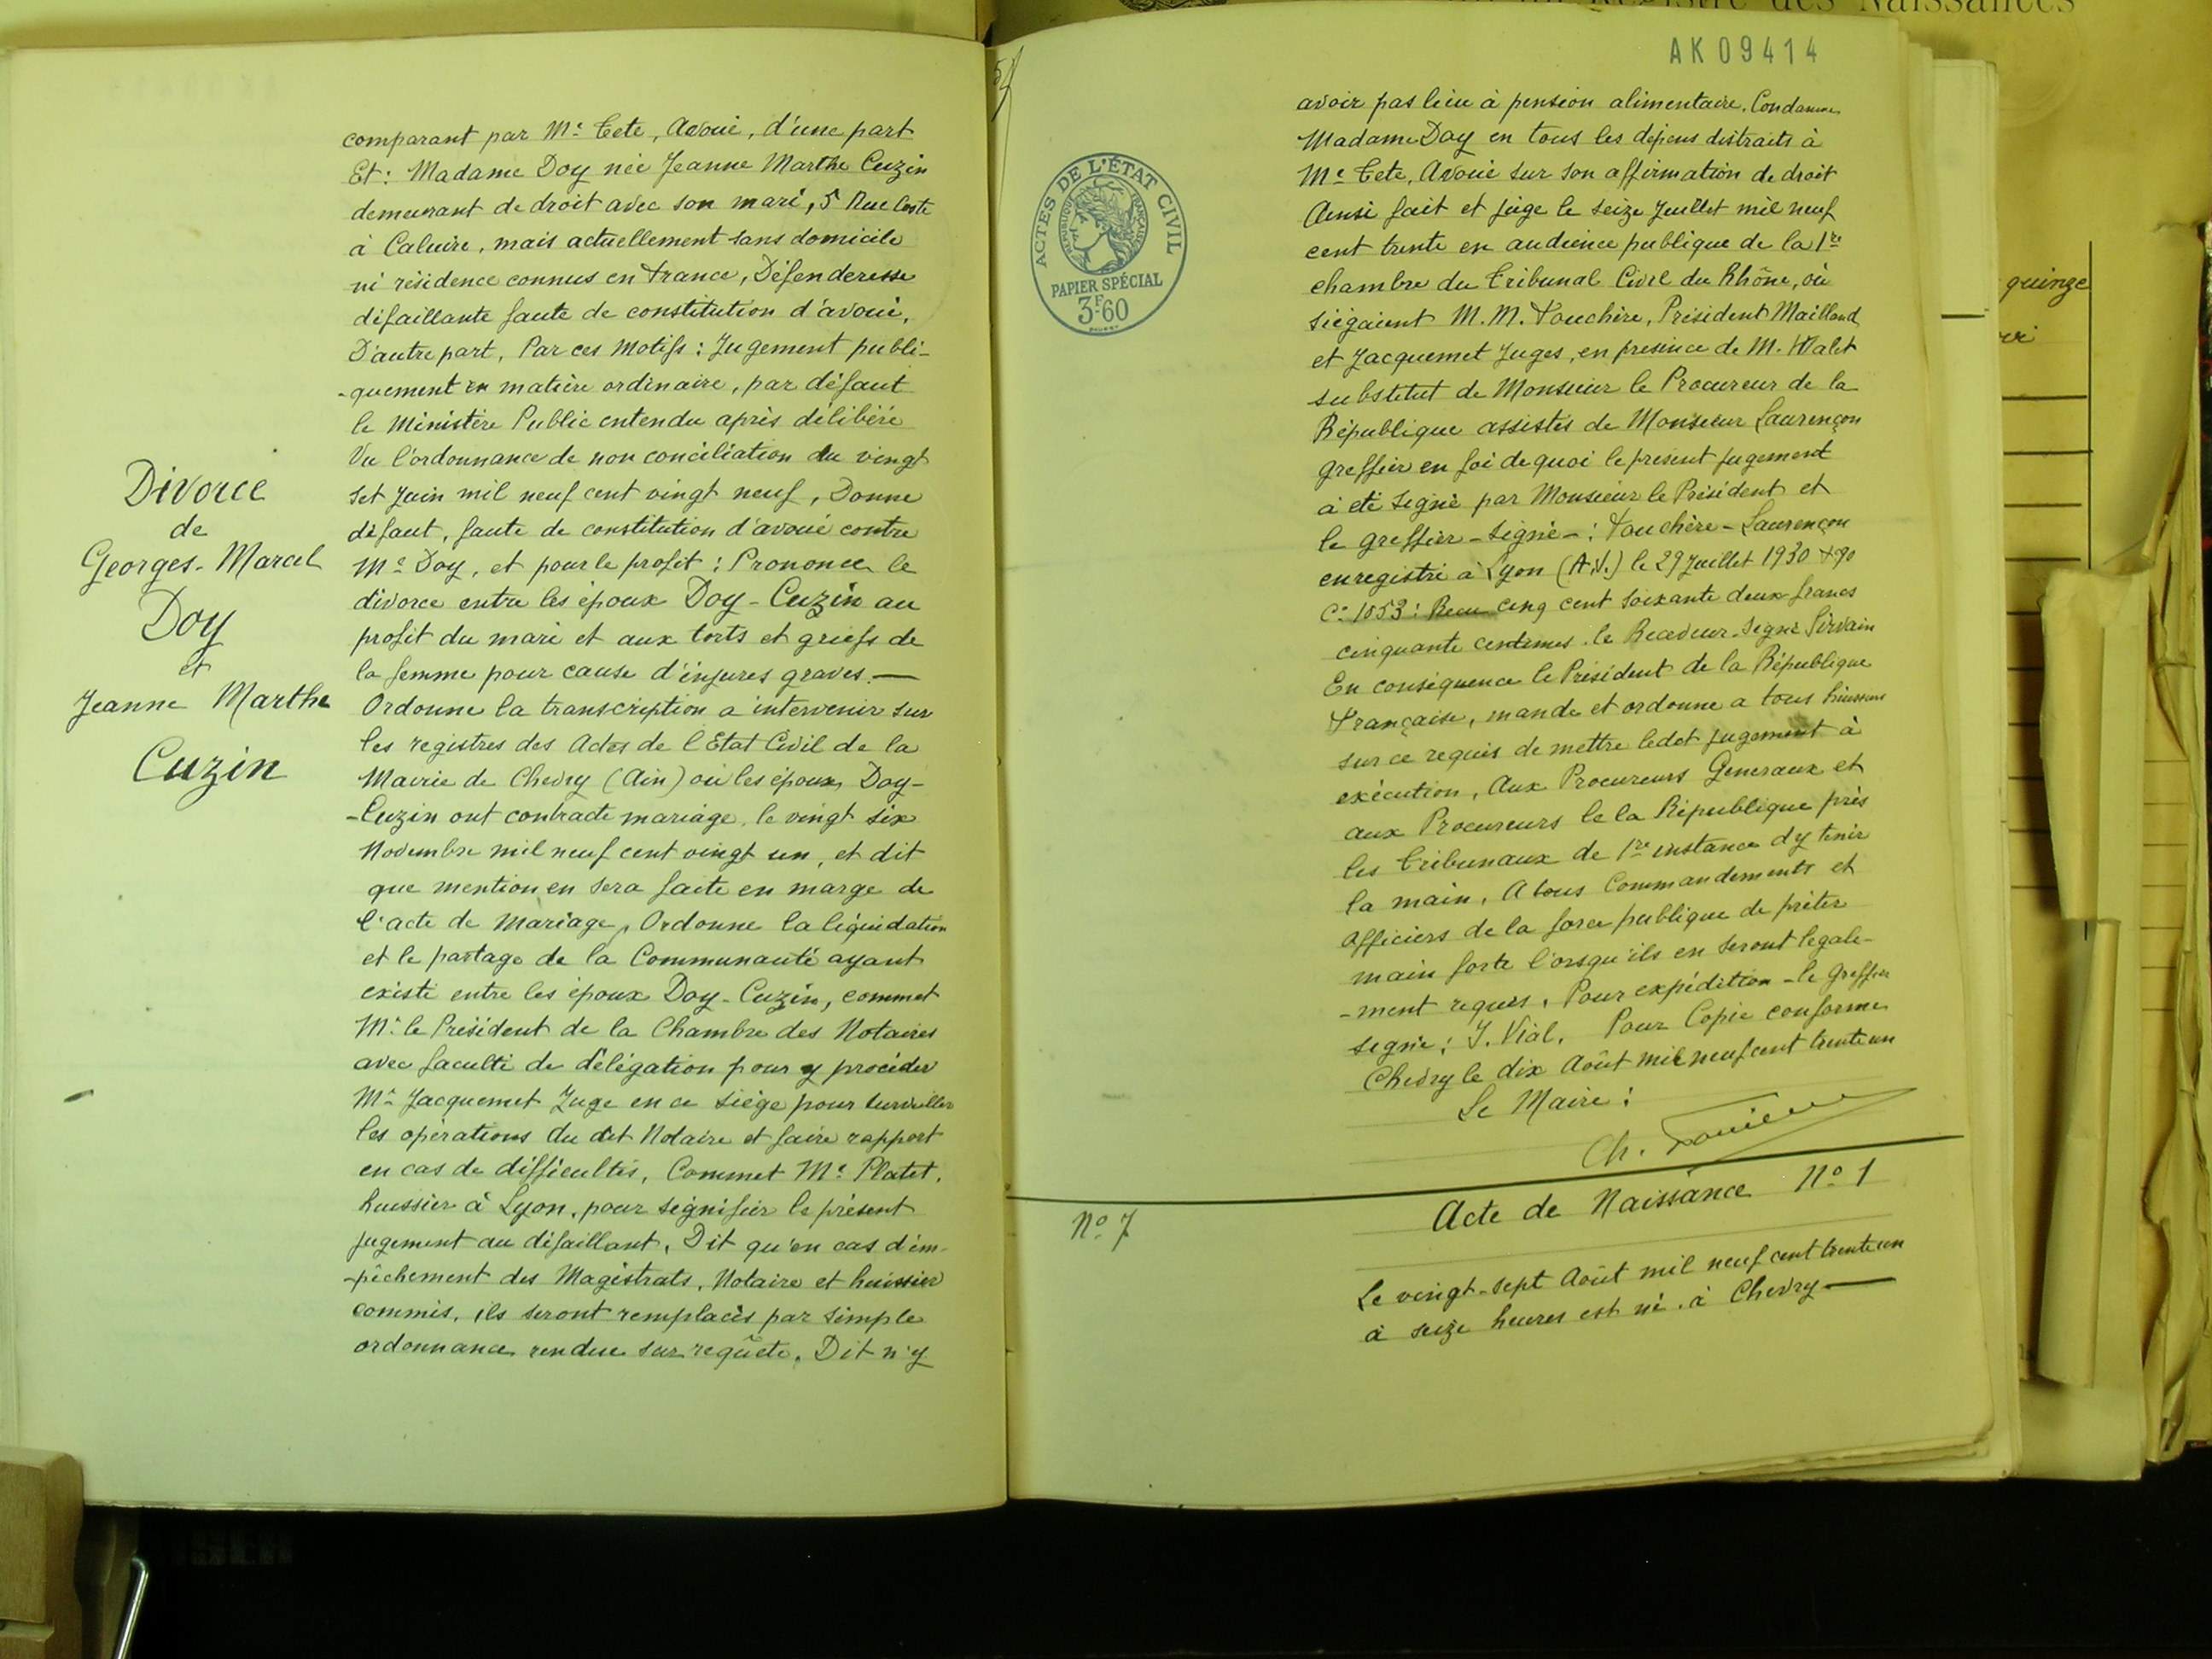 Divorce
de
Georges-Marcel
Doy
et
Jeanne Marthe
Cuzin
comparant par Me Tete, Avoué, d'une part
Et: Madame Doy née Jeanne Marthe Cuzin
demeurant de droit avec son mari, 5 Rue Coste
à Caluire, mais actuellement sans domicile
ni résidence connus en France, Défenderesse
défaillante faute de constitution d'avoué,
D'autre part, Par ces Motifs: Jugement publi-
-quement en matière ordinaire, par défaut
le Ministère Public entendu après délibéré
Vu l'ordonnance de non conciliation du vingt
set Juin mil neuf cent vingt neuf, Donne
défaut, faute de constitution d'avoué contre
Me Doy, et pour le profit: Prononce le
divorce entre les époux Doy-Cuzin au
profit du mari et aux torts et griefs de
la femme pour cause d'injures graves.—
Ordonne la transcription a intervenir sur
les registres des Actes de l'Etat Civil de la
Mairie de Chevry (Ain) où les époux Doy-
-Cuzin ont contracté mariage, le vingt six
Novembre mil neuf cent vingt un, et dit
que mention en sera faite en marge de
l'acte de Mariage, Ordonne la liquidation
et le partage de la Communauté ayant
existé entre les époux Doy-Cuzin, commet
Mr le Président de la Chambre des Notaires
avec faculté de délégation pour y procéder
Mr Jacquemet Juge en ce siège pour surveiller
les opérations du dit Notaire et faire rapport
en cas de difficultés, Commet Me Platet,
huissier à Lyon, pour signifier le présent
jugement au défaillant, Dit qu'en cas d'em-
-pêchement des Magistrats, Notaire et huissier
commis, ils seront remplacés par simple
ordonnance rendue sur requête, Dit n'y
AK09414
ACTES DE L'ÉTAT CIVIL
RÉPUBLIQUE FRANÇAISE
PAPIER SPÉCIAL
3F60
avoir pas lieu à pension alimentaire. Condamne
Madame Doy en tous les dépens distraits à
Me Tete, Avoué sur son affirmation de droit
Ainsi fait et jugé le seize Juillet mil neuf
cent trente en audience publique de la 1re
chambre du Tribunal Civil du Rhône, où
siégaient M.M. Fouchère, Président Mailland
et Jacquemet Juges, en présence de M. Walet
substitut de Monsieur le Procureur de la
République assistés de Monsieur Laurençon
greffier en foi de quoi le présent jugement
à été signé par Monsieur le Président et
le greffier - signé -: Fouchère - Laurençon
enregistré à Lyon (A.J.) le 29 Juillet 1930
Ce 1053: Recu cinq cent soixante deux francs
cinquante centimes. le Receveur. Signé Sirvain
En conséquence le Président de la République
Française, mande et ordonne a tous huissiers
sur ce requis de mettre ledit jugement à
exécution, Aux Procureurs Généraux et
aux Procureurs le la République près
les Tribunaux de 1re instance d'y tenir
la main, A tous Commandements et
Officiers de la force publique de prêter
main forte l'orsqu'ils en seront légale-
-ment requis. Pour expédition - le greffier
signé: J. Vial. Pour Copie conforme
Chevry le dix Août mil neuf cent trente un
Le Maire:
Ch.
No 7
Acte de Naissance No 1
Le vingt-sept Août mil neuf cent trente un
à seize heures est né. à Chevry—
quinze